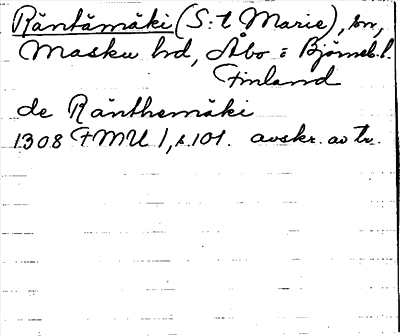 Räntämäki (S:t Marie), sn,
Masku hd, Åbo o Björneb. l.
Finland
de Ränthemäki
1308 FMU 1, s. 101. avskr. av tr.